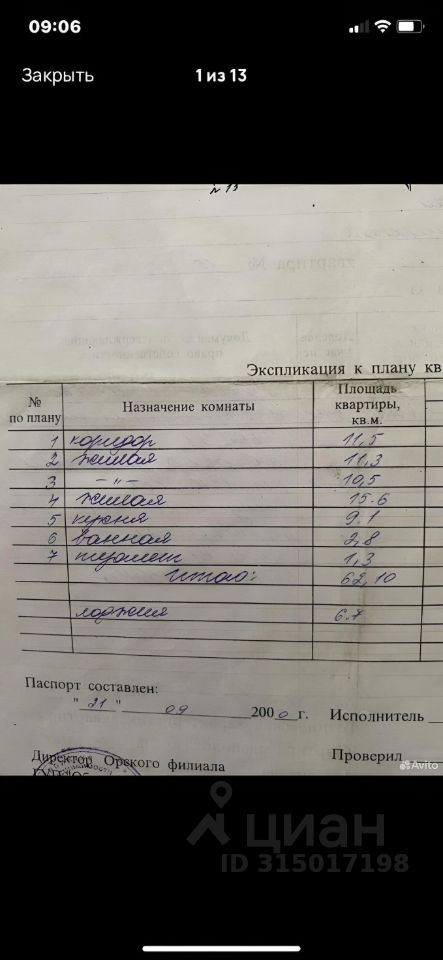 09:06
Закрыть
1 из 13
Экспликация к плану кв
№ по плану
Назначение комнаты
Площадь квартиры, кв.м.
1 коридор 11,5
2 жилая 11,3
3 -"- 10,5
4 жилая 15.6
5 кухня 9.1
6 ванная 2,8
7 туалет 1,3
Итого: 62,10
лоджия 6.7
Паспорт составлен:
"21" 09 2000 г.
Исполнитель
Директор Орского филиала
Проверил
Avito
циан
ID 315017198